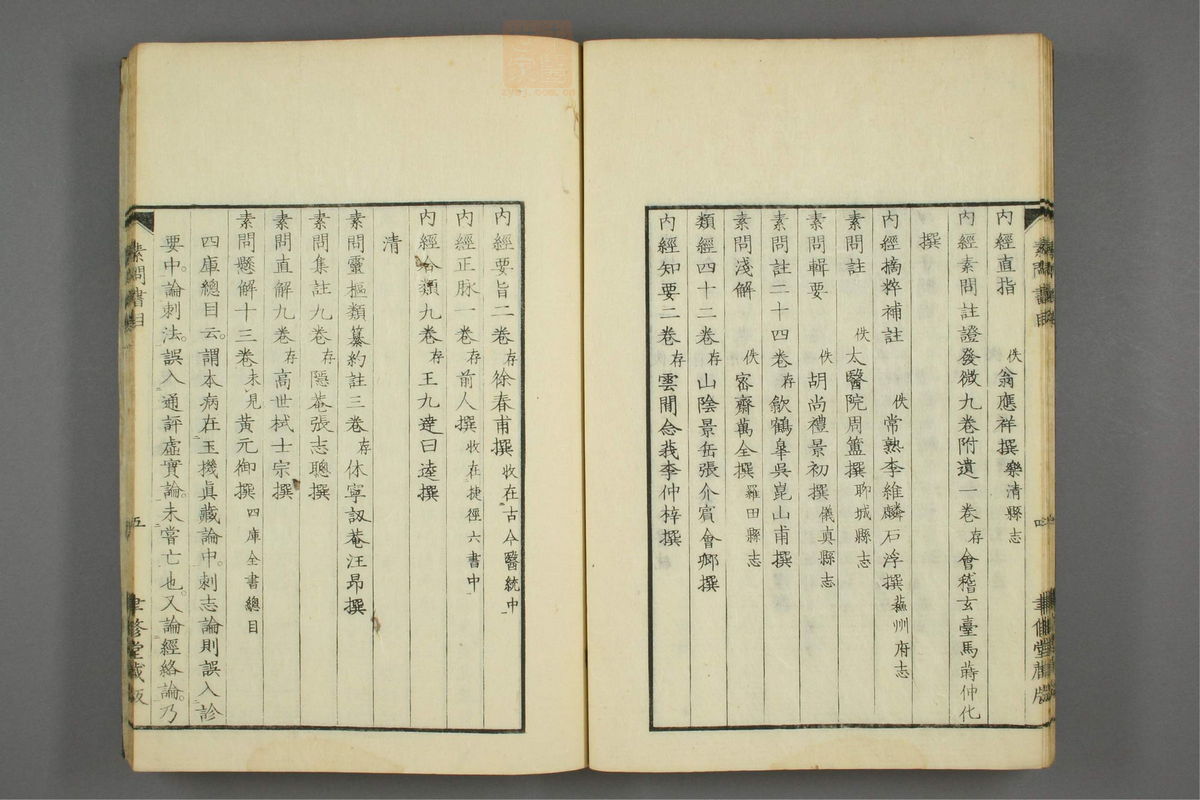 內經直指 佚 翁應祥撰 樂清縣志
內經素問註證發微九卷附遺一卷 存 會稽玄臺馬蒔仲化
撰
內經摘粹補註 佚 常熟李維麟石浮撰 蘇州府志
素問註 佚 太醫院周簠撰 聊城縣志
素問輯要 佚 胡尚禮景初撰 儀真縣志
素問註二十四卷 存 歙鶴皋吳崑山甫撰
素問淺解 佚 密齋萬全撰 羅田縣志
類經四十二卷 存 山陰景岳張介賓會卿撰
內經知要二卷 存 雲間念莪李仲梓撰
素問書目
四
聿修堂藏版
內經要旨二卷 存 徐春甫撰 收在古今醫統中
內經正脉一卷 存 前人撰 收在捷徑六書中
內經合類九卷 存 王九達曰逵撰
清
素問靈樞類纂約註三卷 存 休寧訒菴汪昂撰
素問集註九卷 存 隱菴張志聰撰
素問直解九卷 存 高世栻士宗撰
素問懸解十三卷 未見 黃元御撰 四庫全書總目
四庫總目云。謂本病在玉機眞藏論中。刺志論則誤入診
要中。論刺法。誤入通評虛實論。未嘗亡也。又論經絡論。乃
素問書目
五
聿修堂藏版